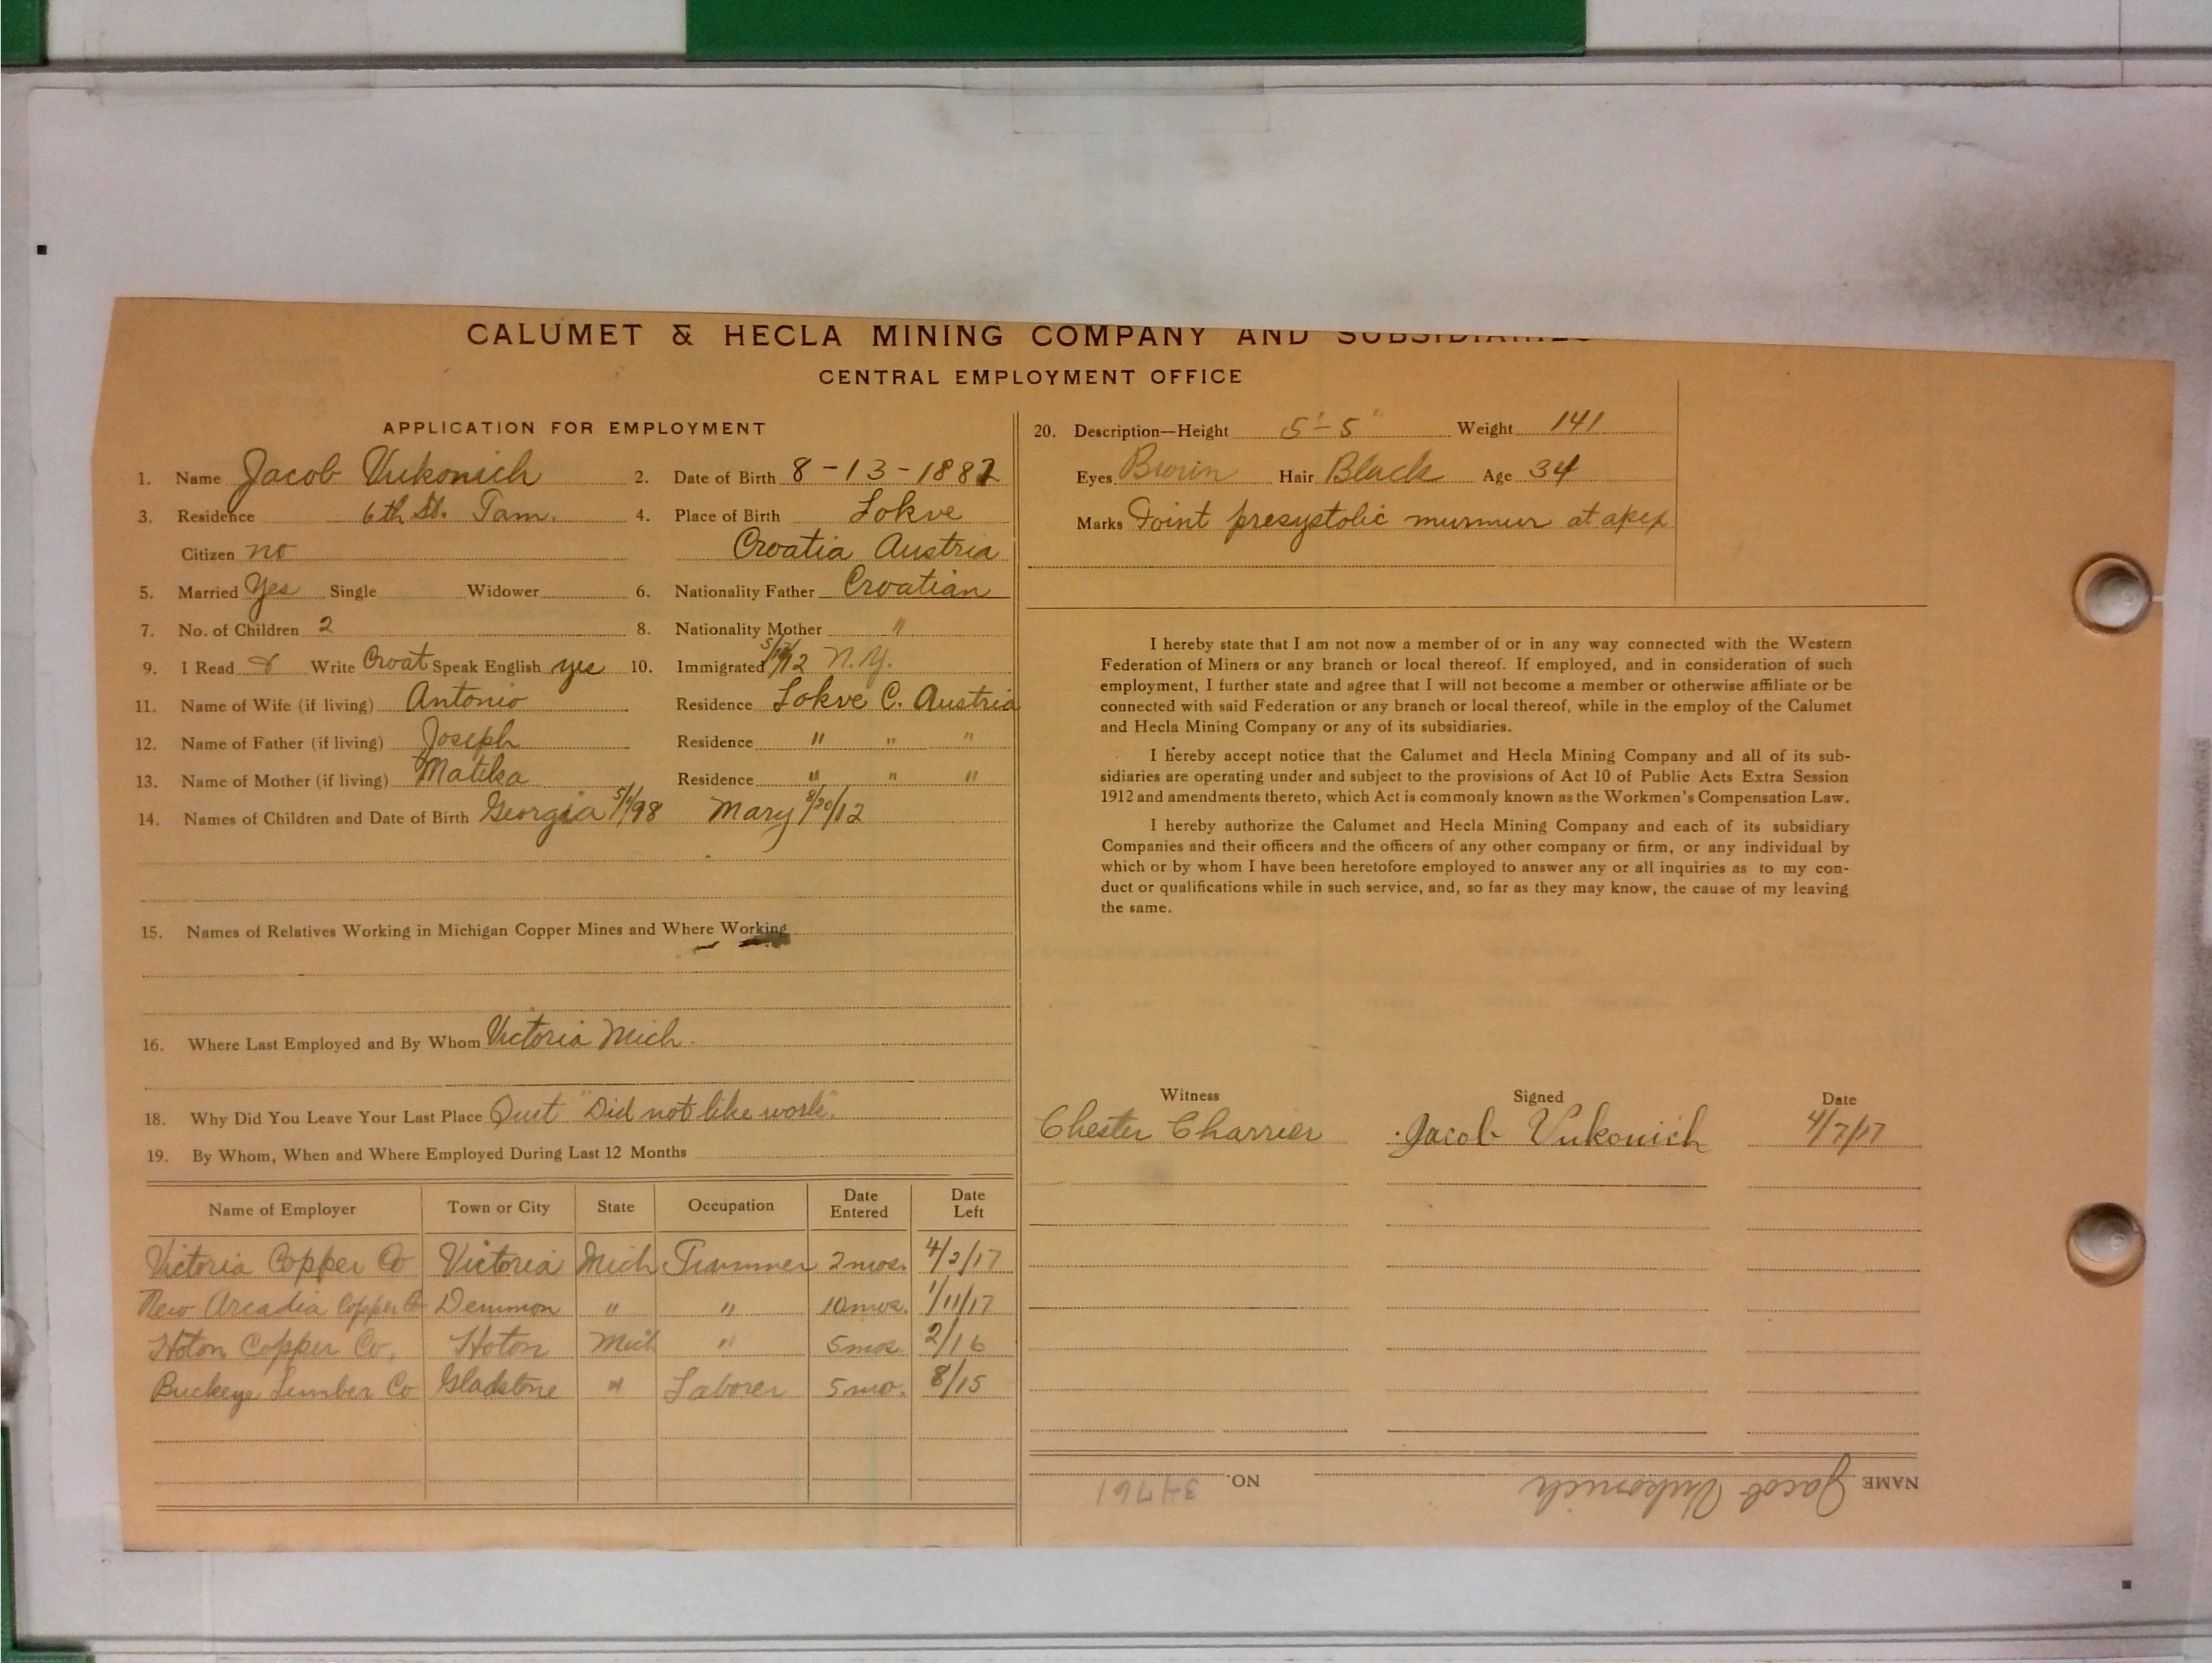 CALUMET & HECLA MINING COMPANY AND SUBSIDIARIES
CENTRAL EMPLOYMENT OFFICE
APPLICATION FOR EMPLOYMENT
1. Name Jacob Vukonich 2. Date of Birth 8-13-1882
3. Residence 6th St. Tam. 4. Place of Birth Lokve
Citizen no Croatia Austria
5. Married Yes Single Widower 6. Nationality Father Croatian
7. No. of Children 2 8. Nationality Mother "
9. I Read & Write Croat Speak English yes 10. Immigrated N.Y.
11. Name of Wife (if living) Antonio Residence Lokve C. Austria
12. Name of Father (if living) Joseph Residence " " "
13. Name of Mother (if living) Matika Residence " " "
14. Names of Children and Date of Birth Georgia 5/1/98 Mary 8/20/12
15. Names of Relatives Working in Michigan Copper Mines and Where Working
16. Where Last Employed and By Whom Victoria Mich.
18. Why Did You Leave Your Last Place Quit "Did not like work".
19. By Whom, When and Where Employed During Last 12 Months
Name of Employer Town or City State Occupation Date Entered Date Left
Victoria Copper Co Victoria Mich Trammer 2 mos. 4/2/17
New Arcadia Copper Co Demmon " " 10 mos. 1/11/17
Hoton Copper Co. Hoton Mich " 5 mos. 2/16
Buckeye Lumber Co Gladstone " Laborer 5 mo. 8/15
20. Description—Height 5'-5" Weight 141
Eyes Brown Hair Black Age 34
Marks Faint presystolic murmur at apex
I hereby state that I am not now a member of or in any way connected with the Western
Federation of Miners or any branch or local thereof. If employed, and in consideration of such
employment, I further state and agree that I will not become a member or otherwise affiliate or be
connected with said Federation or any branch or local thereof, while in the employ of the Calumet
and Hecla Mining Company or any of its subsidiaries.
I hereby accept notice that the Calumet and Hecla Mining Company and all of its sub-
sidiaries are operating under and subject to the provisions of Act 10 of Public Acts Extra Session
1912 and amendments thereto, which Act is commonly known as the Workmen's Compensation Law.
I hereby authorize the Calumet and Hecla Mining Company and each of its subsidiary
Companies and their officers and the officers of any other company or firm, or any individual by
which or by whom I have been heretofore employed to answer any or all inquiries as to my con-
duct or qualifications while in such service, and, so far as they may know, the cause of my leaving
the same.
Witness Signed Date
Chester Charrier Jacob Vukonich 4/7/17
NAME Jacob Vukonich NO. 34761